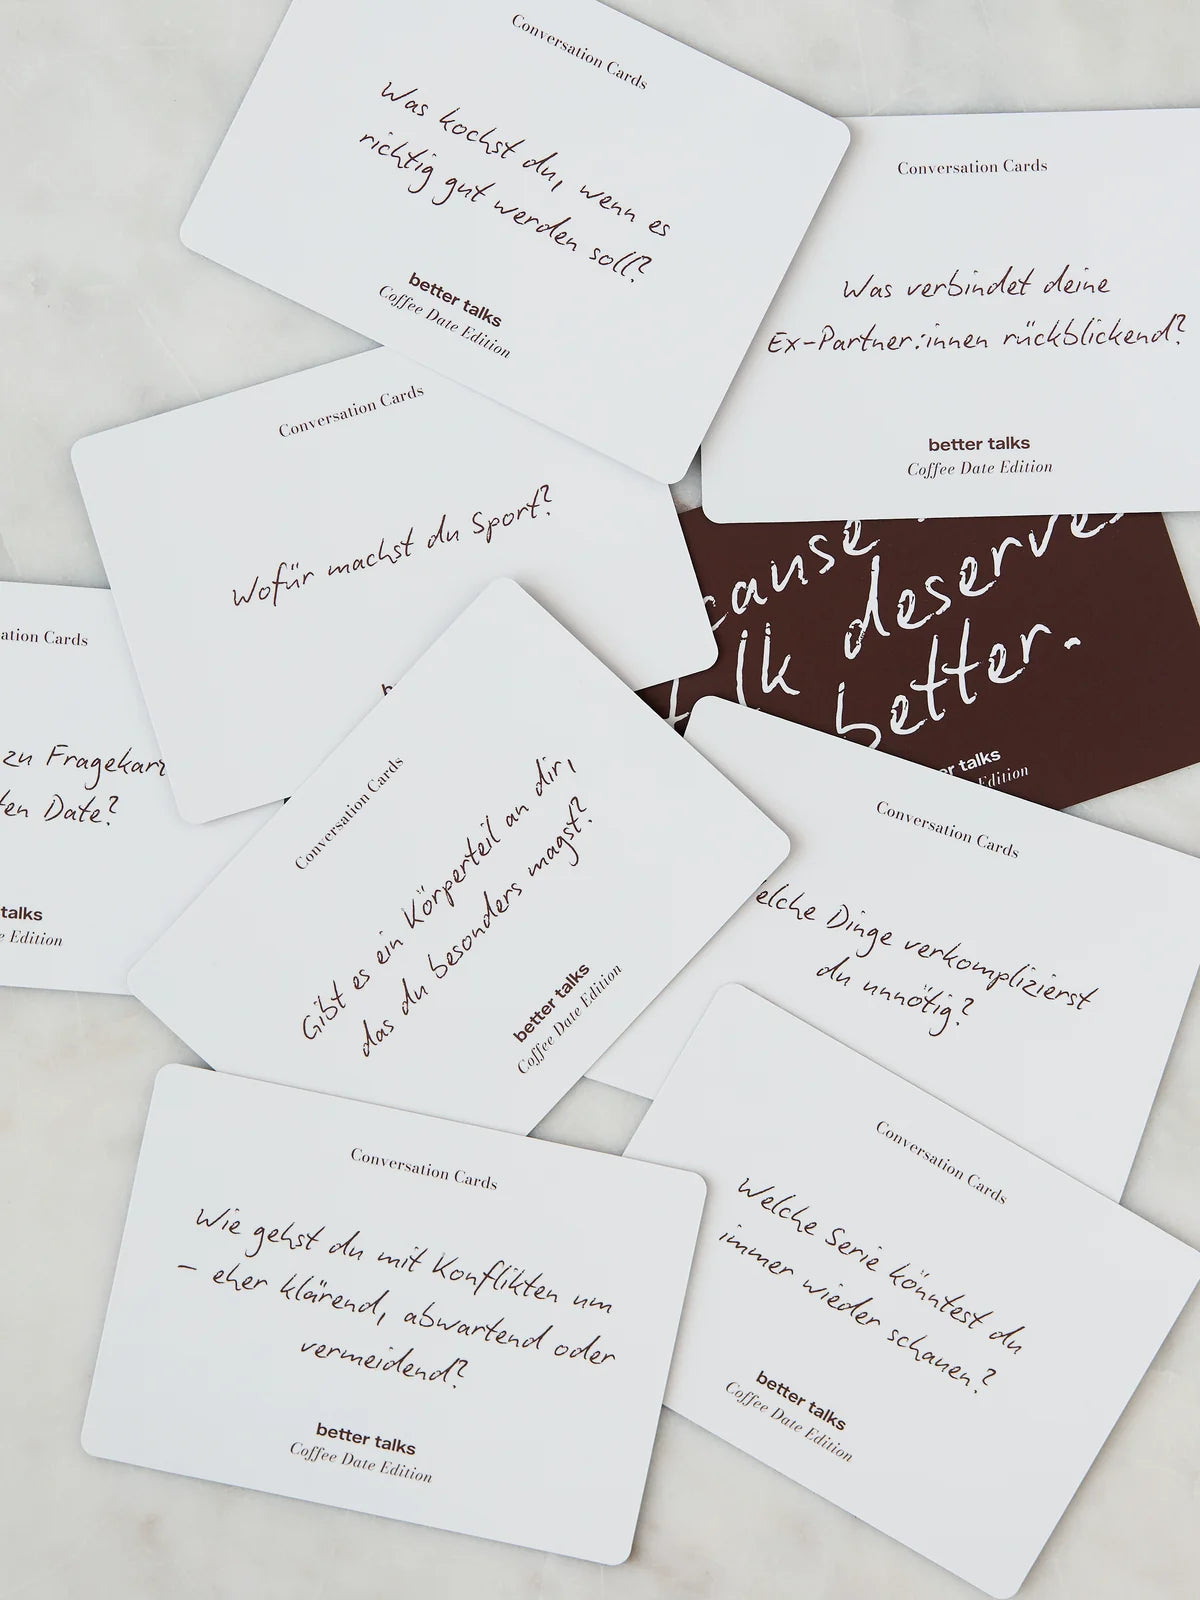 Conversation Cards
Was kochst du, wenn es
richtig gut werden soll?
better talks
Coffee Date Edition
Conversation Cards
Was verbindet deine
Ex-Partner:innen rückblickend?
better talks
Coffee Date Edition
Conversation Cards
Wofür machst du Sport?
deserves
better.
talks
Edition
Cards
zu
Date?
talks
Edition
Conversation Cards
Gibt es ein Körperteil an dir,
das du besonders magst?
better talks
Coffee Date Edition
Conversation Cards
Dinge verkomplizierst
du unnötig?
Conversation Cards
Wie gehst du mit Konflikten um
– eher klärend, abwartend oder
vermeidend?
better talks
Coffee Date Edition
Conversation Cards
Welche Serie könntest du
immer wieder schauen?
better talks
Coffee Date Edition